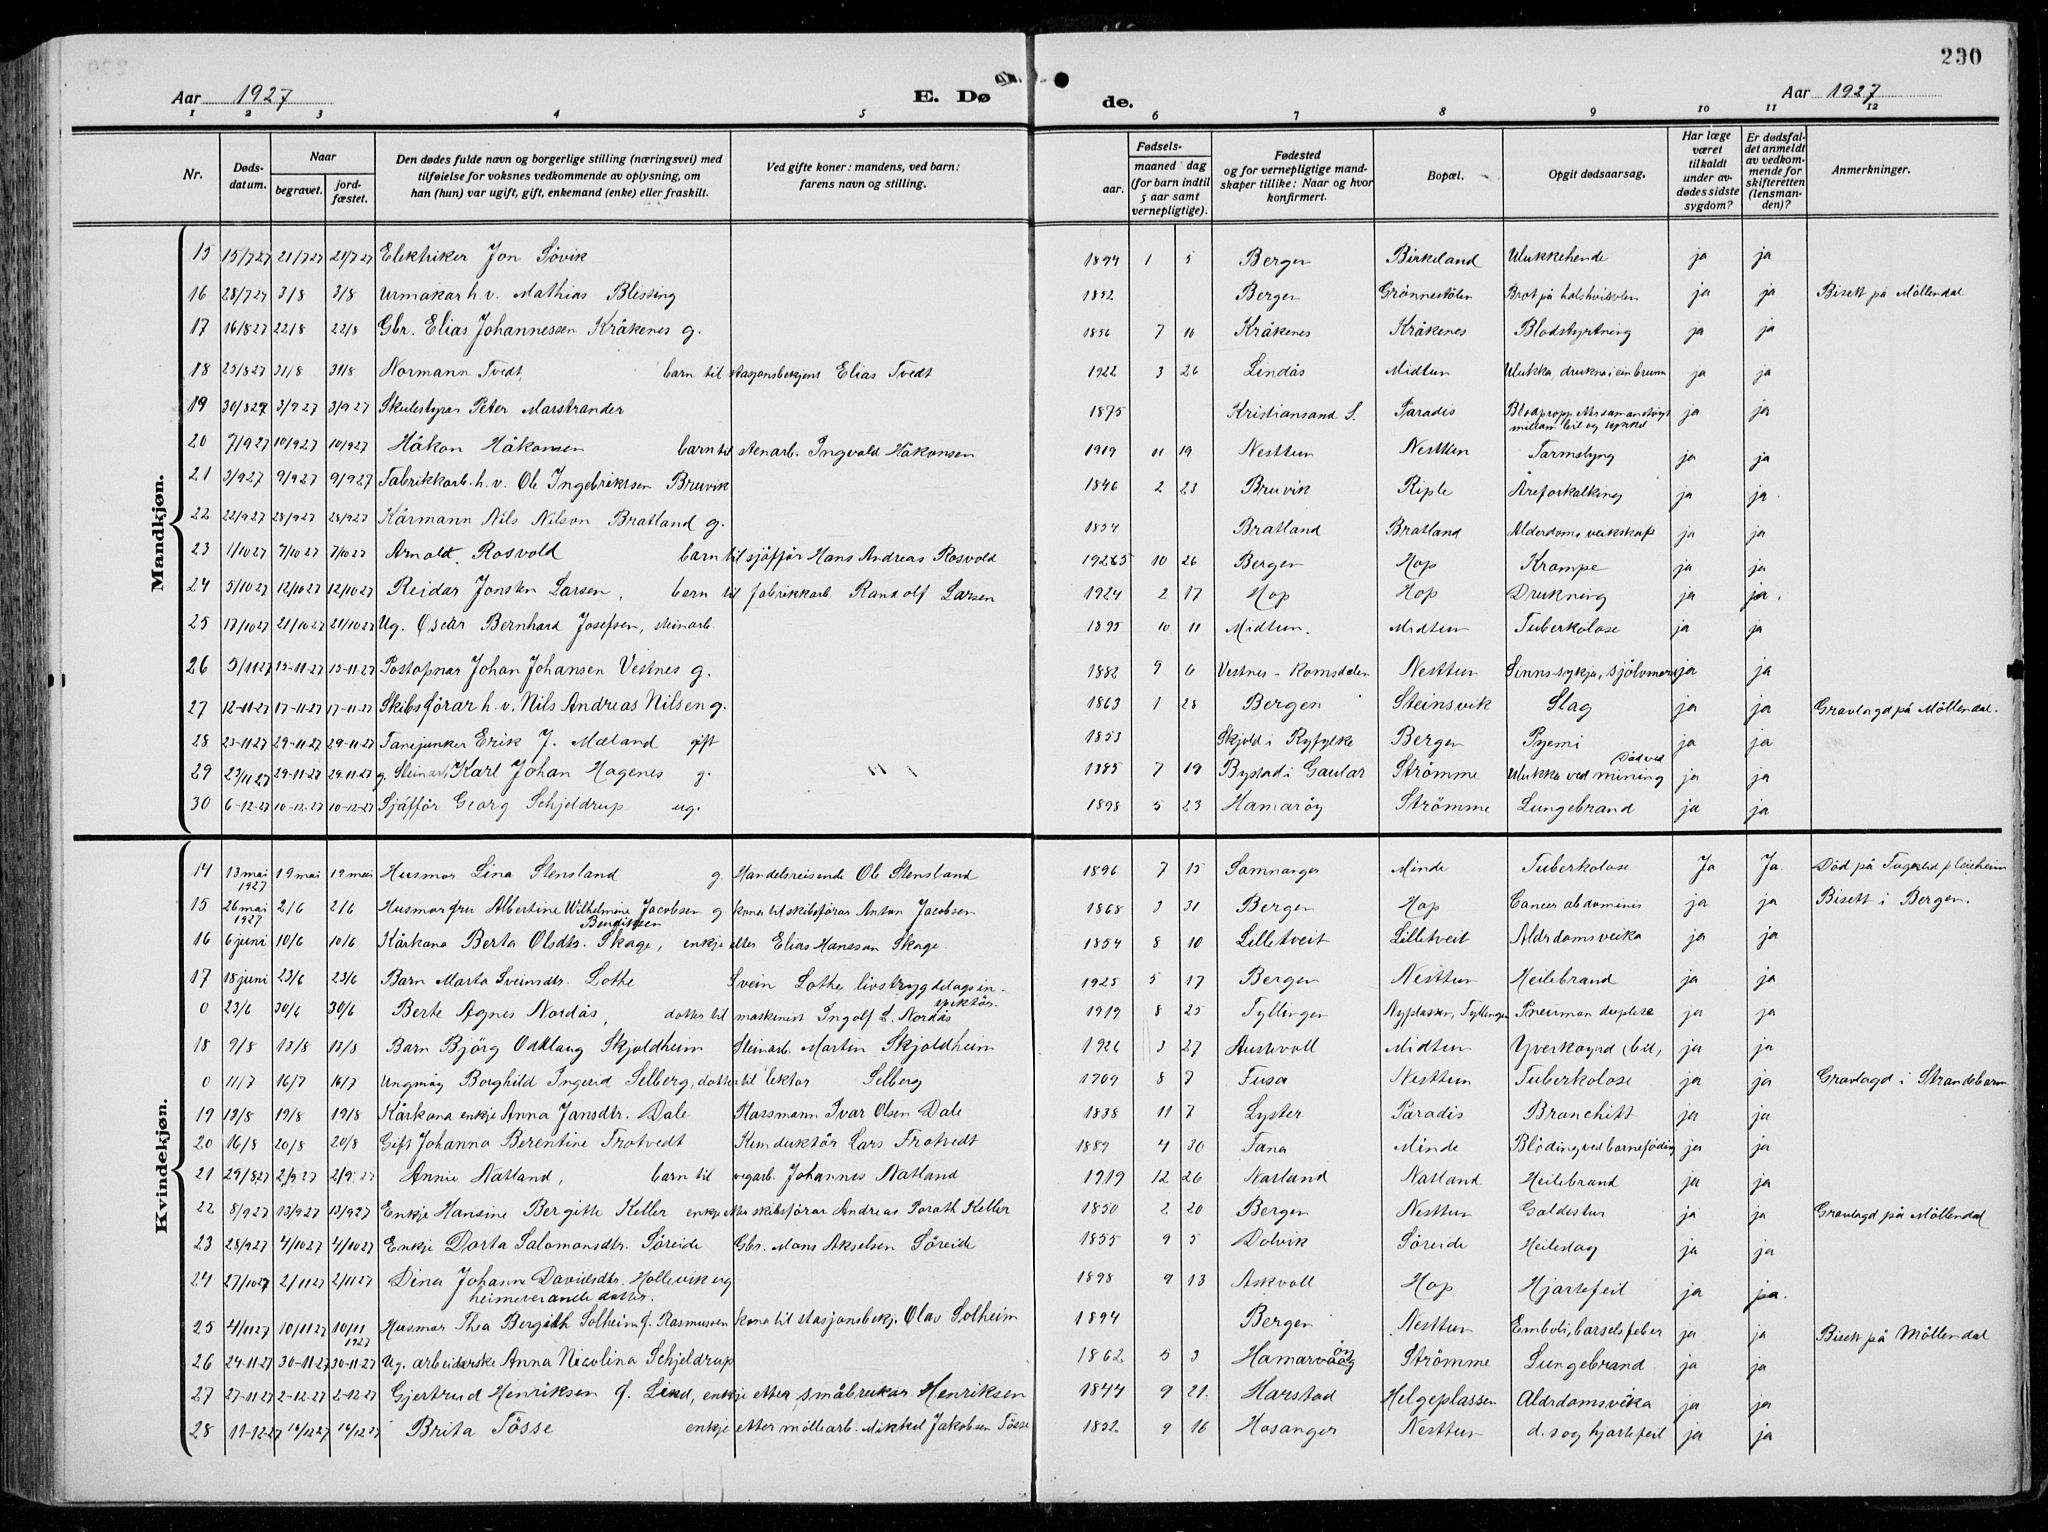 230
Aar 1927 E. Dø de. Aar 1927
1 2 3 4 5 6 7 8 9 10 11 12
Nr. Døds-datum. Naar begravet. jord-fæstet. Den dødes fulde navn og borgerlige stilling (næringsvei) med tilføielse for voksnes vedkommende av oplysning, om han (hun) var ugift, gift, enkemand (enke) eller fraskilt. Ved gifte koner: mandens, ved barn: farens navn og stilling. Fødsels- aar. maaned dag (for barn indtil 5 aar samt vernepligtige). Fødested og for vernepligtige mandskaper tillike: Naar og hvor konfirmert. Bopæl. Opgit dødsaarsag. Har læge været tilkaldt under avdødes sidste sygdom? Er dødsfaldet anmeldt av vedkommende for skifteretten (lensmanden)? Anmerkninger.
Mandkjøn.
15 15/7 27 21/7 27 21/7 27 Elektriker Jon Søvik 1894 1 5 Bergen Birkeland Ulukkehende ja ja
16 28/7 27 3/8 3/8 Urmakar h.v. Mathias Blissing 1852 Bergen Grönnestölen Brot på halshvirvlen ja ja Bisett på Möllendal
17 16/8 27 22/8 22/8 Gbr. Elias Johannessen Kråkenes g. 1856 7 10 Kråkenes Kråkenes Blodstyrtning ja ja
18 25/8 27 31/8 31/8 Normann Tvedt, barn til stasjonsbekjent Elias Tvedt 1922 3 26 Lindås Midtun Ulukka, drukna i ein brunn ja ja
19 30/8 27 3/9 27 3/9 27 Skulestyrar Peter Marstrander 1875 Kristiansand S. Paradis Blodpropp etter samanstöyt millom bil og sykkel ja ja
20 7/9 27 10/9 27 10/9 27 Håkon Håkonsen barn til stenarb. Ingvald Håkonsen 1919 11 19 Nesttun Nesttun Tarmslyng ja ja
21 3/9 27 9/9 27 9/9 27 Fabrikkarb. h.v. Ole Ingebriktsen Bruvik 1846 2 23 Bruvik Riple Åreforkalking ja ja.
22 22/9 27 28/9 27 28/9 27 Kårmann Nils Nilson Bratland g. 1854 Bratland Bratland Alderdoms veikskap ja ja
23 1/10 27 7/10 27 7/10 27 Arnold Rosvold barn til sjåffør Hans Andreas Rosvold 19265 10 26 Bergen Hop Krampe ja ja
24 5/10 27 12/10 27 12/10 27 Reidar Jonsten Larsen, barn til fabrikkarb Randolf Larsen 1924 2 17 Hop Hop Drukning ja ja.
25 17/10 27 21/10 27 21/10 27 Ug. Oscar Bernhard Josefsen, steinarb 1895 10 11 Midtun. Midtun Tuberkolose ja ja
26 9/11 27 15-11-27 15-11-27 Postopnar Johan Johansen Vestnes g. 1882 9 6 Vestnes - Romsdalen Nesttun Sinns-sykja, sjölvmord ja ja
27 12-11-27 17-11-27 17-11-27 Skibsförar h.v. Nils Andreas Nilsen g. 1863 1 28 Bergen Steinsvik Slag ja ja Gravlagd på Möllendal.
28 23-11-27 29-11-27 29-11-27 Fanejunker Erik J. Mæland gift 1853 Skjold i Ryfylke Bergen Pyemi ja ja
29 23/11 27 29-11-27 29-11-27 g. Steinarb. Karl Johan Hagenes g. 1885 7 19 Bystad i Gaular Strömme Ulukka ved mining Död ved ja ja
30 6-12-27 10-12-27 10-12-27 Sjåffør Georg Schjeldrup ug. 1898 5 23 Hamaröy Strömme Lungebrand ja ja
Kvindekjøn.
14 13 mai 1927 19 mai 19 mai Husmor Lina Stensland g. Handelsreisende Ole Stensland 1896 7 15 Samnanger Minde Tuberkolose Ja Ja. Död på pleieheim
15 26 mai 1927 2/6 2/6 Husmor fru Albertine Wilhelmine Jacobsen g Bendixsen kona til skibsförar Anton Jacobsen 1868 3 31 Bergen Hop Cancer abdominis ja ja Bisett i Bergen.
16 6 juni 10/6 10/6 Kårkona Berta Olsdtr. Skage, enkje etter Elias Hansson Skage. 1854 8 10 Lilletveit Lilletveit Aldrdomsveika ja ja
17 18 juni 23/6 23/6 Barn Marta Sveinsdtr. Lothe Svein Lothe livstrygdelagsinspektör. 1925 5 17 Bergen Nesttun Heilebrand ja ja
0 23/6 30/6 30/6 Berte Agnes Nordås, dotter til maskinist Ingolf L. Nordås 1919 8 25 Tyllingen Nyplassen, Tyllingen Pneumon duplese ja ja
18 9/8 13/8 13/8 Barn Björg Oddlaug Skjoldheim Steinarb. Martin Skjoldheim 1926 3 27 Austvoll Midtun Yverkøyrd (bil) ja ja
0 11/7 16/7 16/7 Ungmöy Borghild Ingerid Selberg, dotter til lektor Selberg 1909 8 7 Fusa Nesttun Tuberkolose ja ja Gravlagd i Strandebarm
19 12/8 19/8 19/8 Kårkona enkje Anna Jansdtr. Dale Plassmann Ivar Olsen Dale 1838 11 7 Lyster Paradis Bronchitt ja ja
20 16/8 20/8 20/8 Gift Johanna Berentine Frotvedt Kunduktör Lars Frotvedt 1889 4 30 Fana Minde Blöding ved barneföding ja ja
21 29/8 27 2/9 27 2/9 27 Annie Natland, barn til vegarb. Johannes Natland 1919 12 26 Natland Natland Heilebrand ja ja
22 8/9 27 13/9 27 13/9 27 Enkje Hansine Bergitte Keller enkje etter skibsförar Andreas Porath Keller 1850 2 20 Bergen Nesttun Galdestur ja ja Gravlagd på Möllendal
23 28/9 27 4/10 27 4/10 27 Enkje Dorta Salomonsdtr. Söreide Gbr. Mons Akselsen Söreide 1855 9 5 Dolvik Söreide Heileslag ja ja
24 27/10 27 2/11 27 2/11 27 Dina Johanne Davidsdtr. Hollevik ug heimeverande dotter. 1898 9 13 Askvoll Hop Hjartefeil ja ja.
25 4/11 27 10/11 27 10/11 1927 Husmor Thea Bergith Solheim f. Rasmussen kona til stasjonsbekj. Olav Solheim 1894 Bergen Nesttun Emboli, barselsfeber ja ja Bisett på Möllendal
26 24-11-27 30-11-27 30-11-27 Ug. arbeiderske Anna Nicolina Schjeldrup 1862 5 3 Hamaröy Strömme Lungebrand ja ja
27 27-11-27 2-12-27 2-12-27 Gjertrud Henriksen f. Lind, enkje etter småbrukar Henriksen 1844 9 21. Harstad Helgeplassen Aldrdomsveika ja ja
28 11-12-27 14/12 27 14/12 27 Brita Tösse enkje etter möllearb. Mikkel Jakobsen Tösse 1852 9 16 Hosanger Nesttun d.s og hjartefeil ja ja